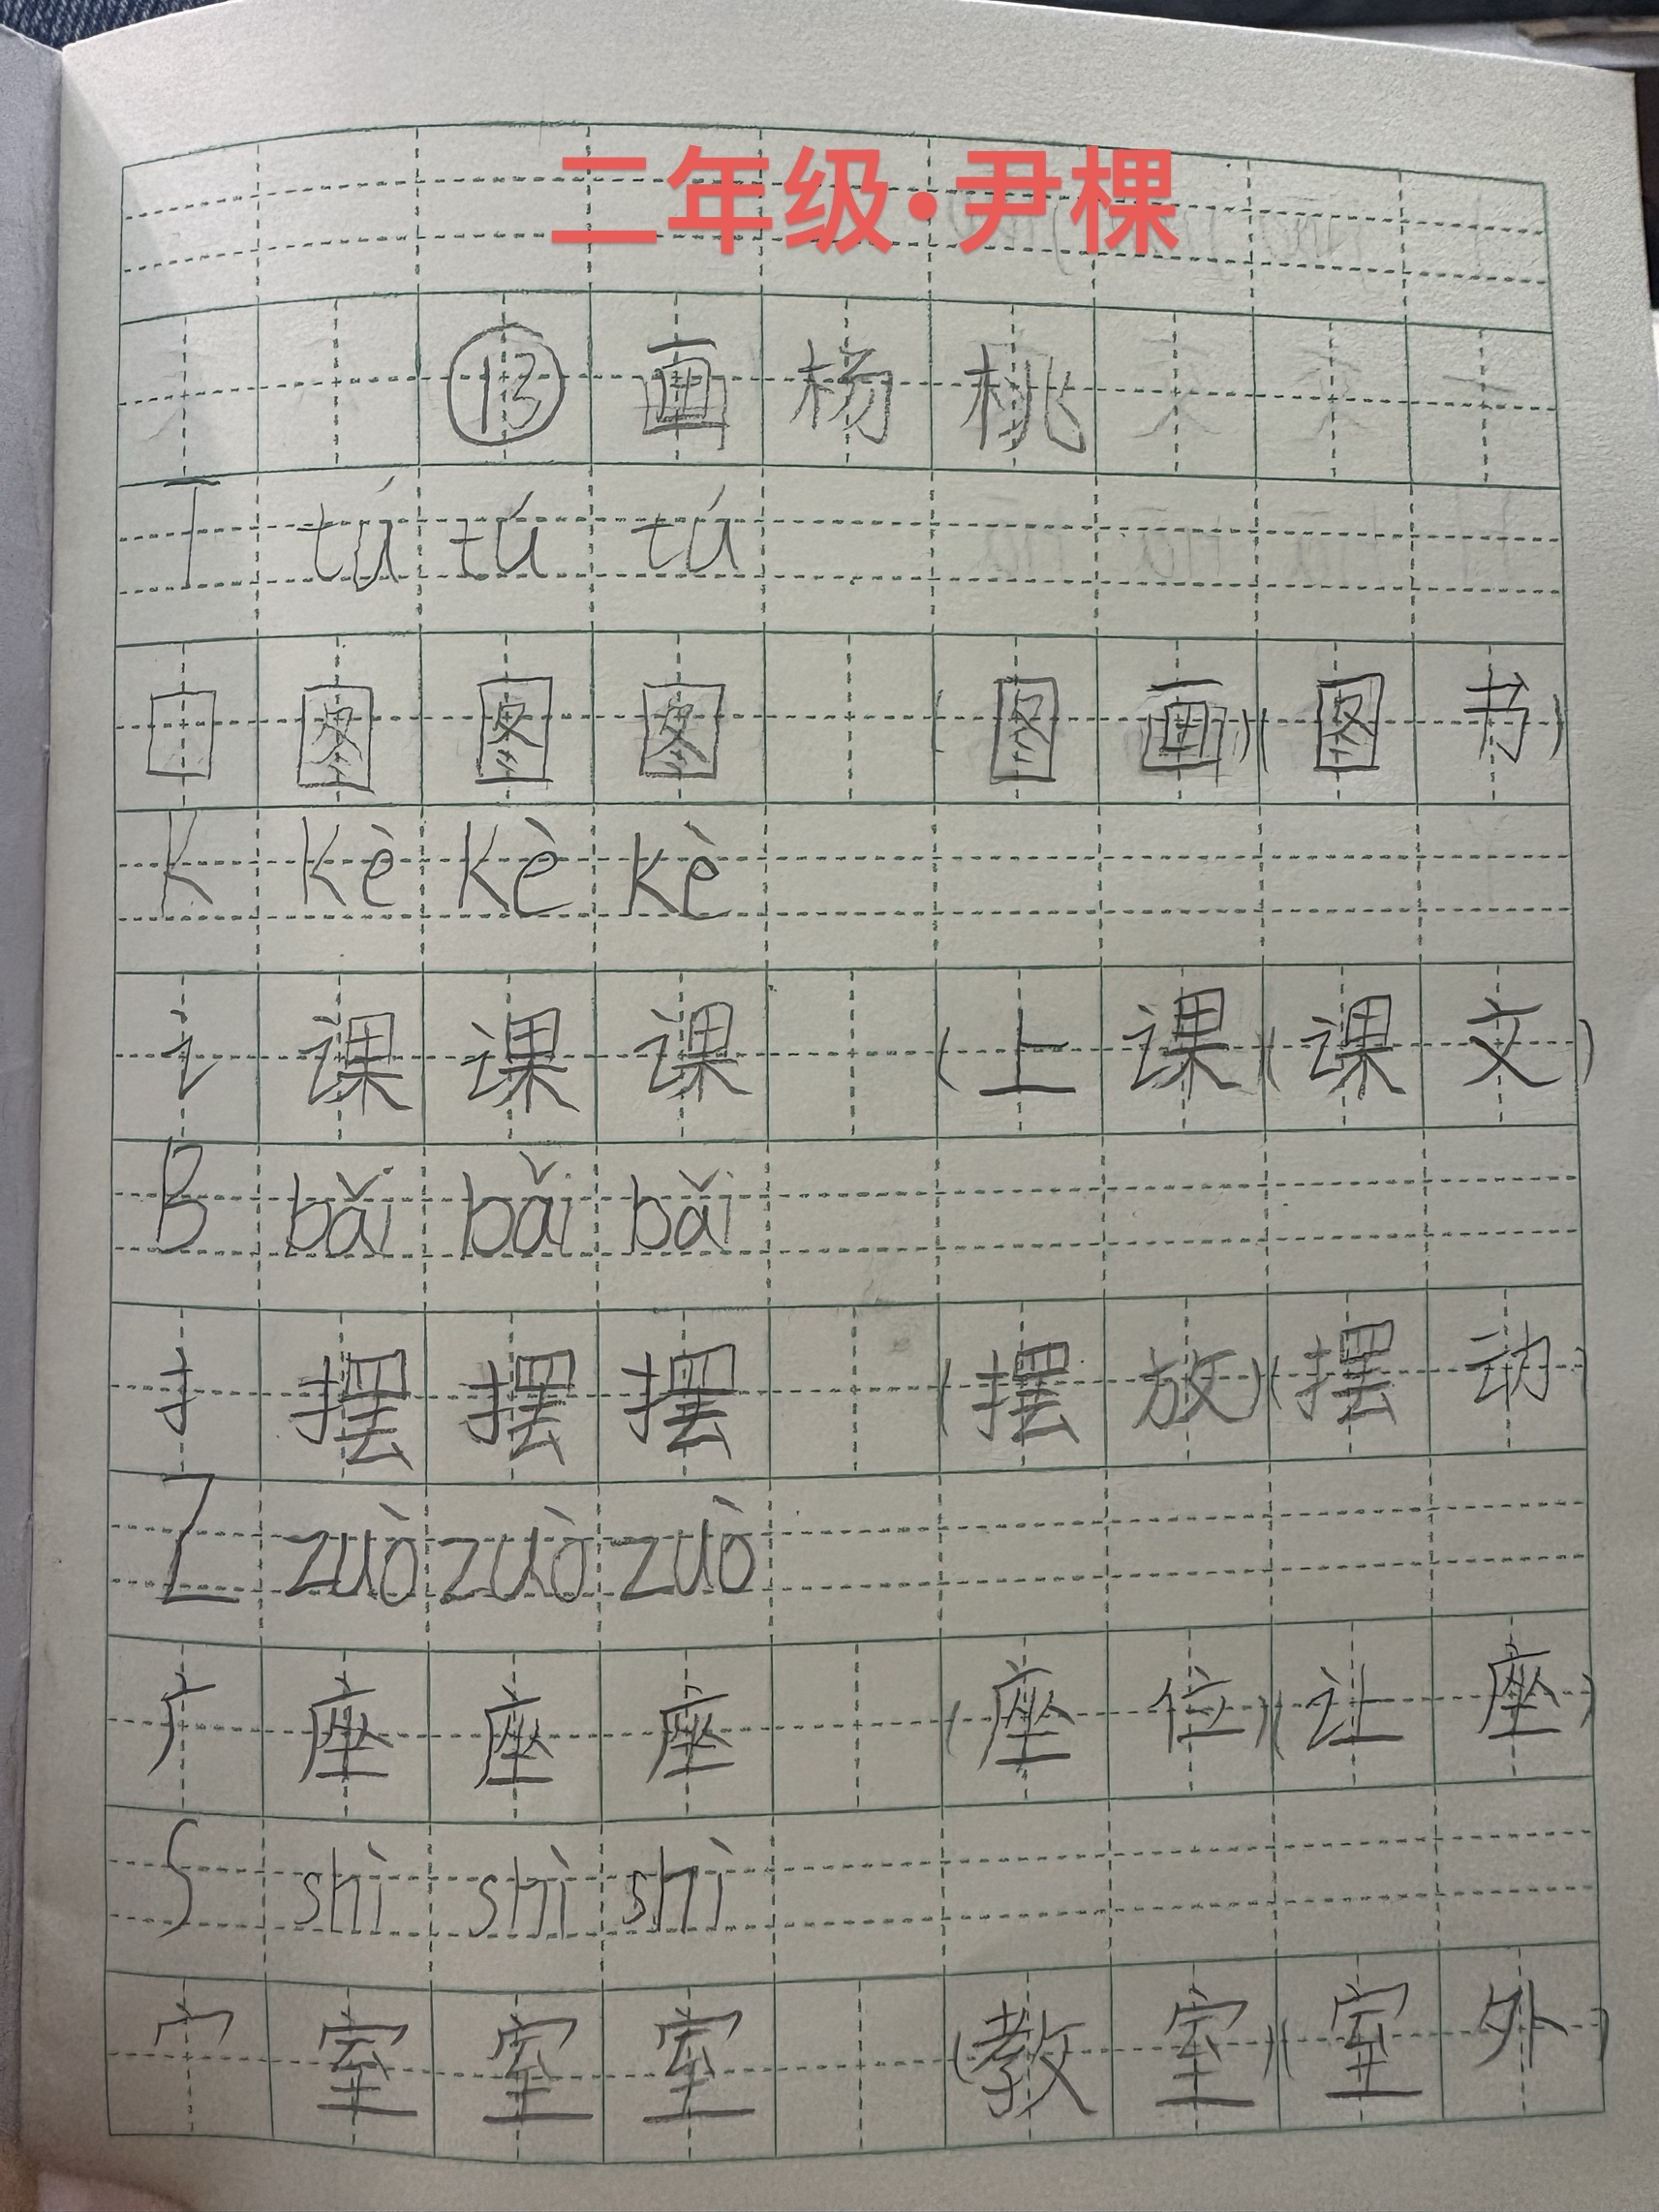 二年级·尹棵
⑬ 画 杨 桃
T tú tú tú
囗 图 图 图 (图 画)(图 书)
K kè kè kè
讠 课 课 课 (上 课)(课 文)
B bǎi bǎi bǎi
扌 摆 摆 摆 (摆 放)(摆 动)
Z zuò zuò zuò
广 座 座 座 (座 位)(让 座)
S shì shì shì
宀 室 室 室 (教 室)(室 外)